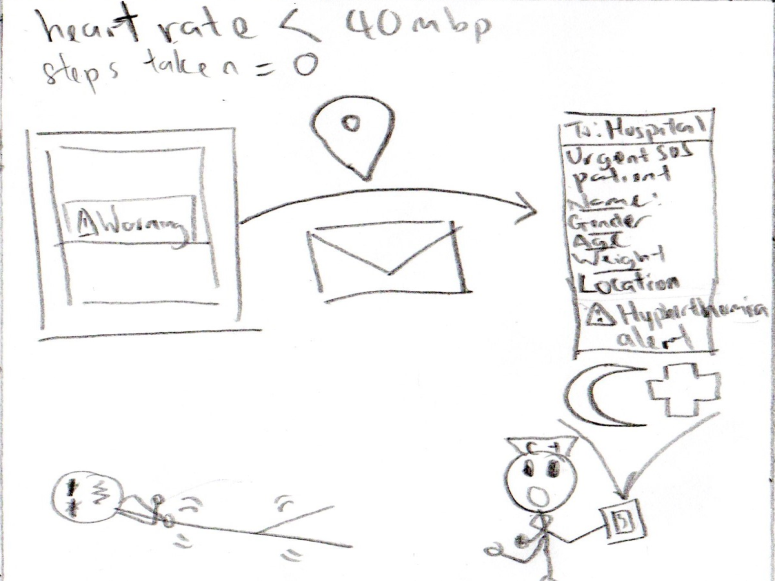 heart rate < 40mbp
steps taken = 0
Warning
To: Hospital
Urgent SOS
patient
Name:
Gender
Age
Weight
Location
Hyperthermia
alert